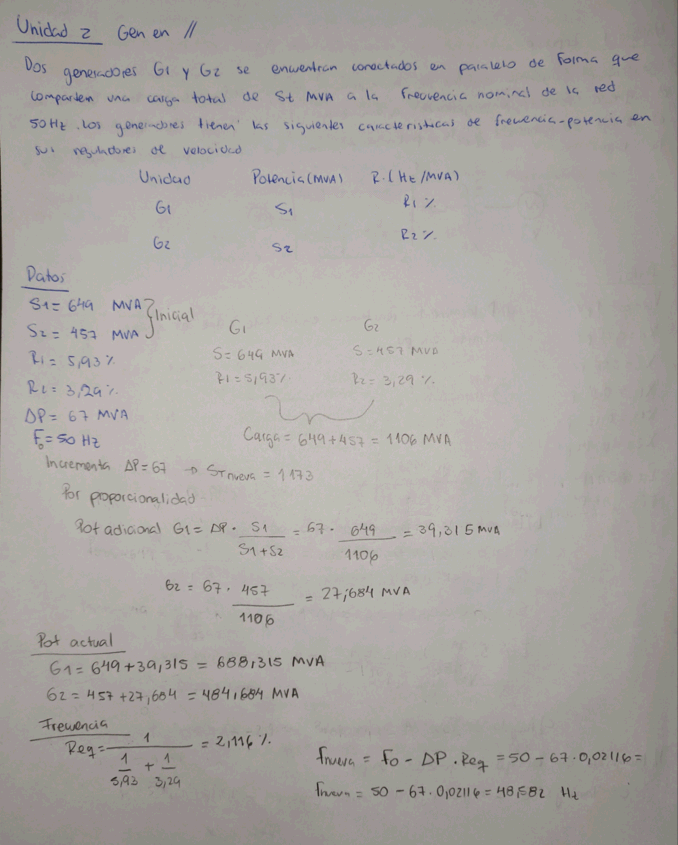 Unidad 2 Gen en //
Dos generadores G1 y G2 se encuentran conectados en paralelo de forma que
comparten una carga total de St MVA a la frecuencia nominal de la red
50 Hz. Los generadores tienen las siguientes características de frecuencia-potencia en
sus reguladores de velocidad
Unidad Potencia (MVA) R.(Hz/MVA)
G1 S1 R1 %
G2 S2 R2 %
Datos
S1= 649 MVA } Inicial
S2= 457 MVA
R1= 5,93 %
R2= 3,29 %
ΔP= 67 MVA
Fo= 50 Hz
G1 G2
S= 649 MVA S=457 MVA
R1=5,93% R2= 3,29 %
Carga= 649+457 = 1106 MVA
Incrementa ΔP=67 → STnueva = 1173
Por proporcionalidad
Pot adicional G1= ΔP · S1/(S1+S2) = 67 · 649/1106 = 39,315 MVA
G2 = 67 · 457/1106 = 27,684 MVA
Pot actual
G1= 649+39,315 = 688,315 MVA
G2= 457+27,684 = 484,684 MVA
Frecuencia
Req= 1/(1/5,93 + 1/3,29) = 2,116 %
fnueva = Fo - ΔP . Req = 50 - 67 . 0,02116 =
fnueva = 50 - 67 . 0,02116 = 48,582 Hz